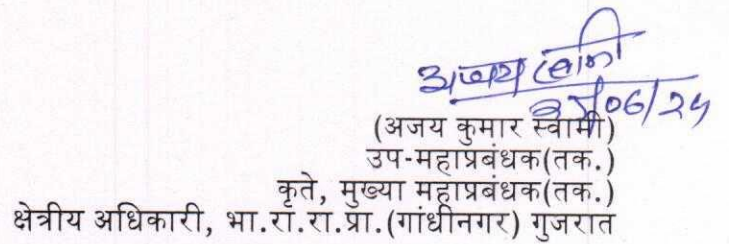 अजय स्वामी
(अजय कुमार स्वामी)
उप-महाप्रबंधक(तक.)
कृते, मुख्या महाप्रबंधक(तक.)
क्षेत्रीय अधिकारी, भा.रा.रा.प्रा.(गांधीनगर) गुजरात